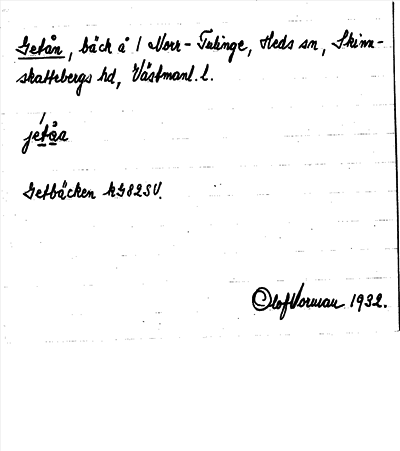 Getån, bäck å / Norr-Tulinge, Heds sn, Skinn-
skattebergs hd, Västmanl. l.
jetåa
Getbäcken kG82SV.
Olof Vorman 1932.